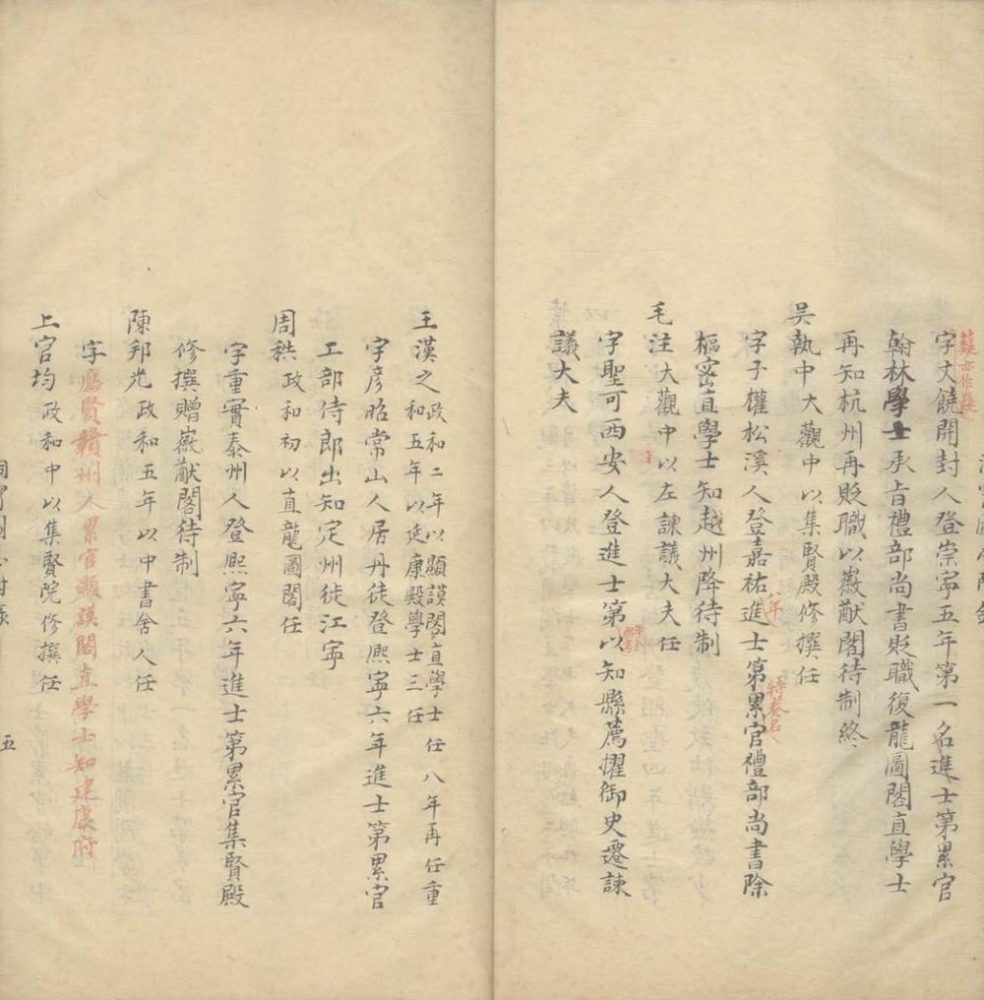 字文饒開封人登崇寧五年第一名進士第累官
翰林學士承旨禮部尚書貶職復龍圖閣直學士
再知杭州再貶職以徽猷閣待制終
吳執中大觀中以集賢殿修撰任
字子權松溪人登嘉祐進士第累官禮部尚書除
八年
樞密直學士知越州降待制
毛注大觀中以左諫議大夫任
字聖可西安人登進士第以知縣薦擢御史遷諫
議大夫
王漢之政和二年以顯謨閣直學士任八年再任重
和五年以延康殿學士三任
字彥昭常山人居丹徒登熙寧六年進士第累官
工部侍郎出知定州徙江寧
周秩政和初以直龍圖閣任
字重實泰州人登熙寧六年進士第累官集賢殿
修撰贈徽猷閣待制
陳邦光政和五年以中書舍人任
字應賢贛州人累官顯謨閣直學士知建康府
上官均政和中以集賢院修撰任
五